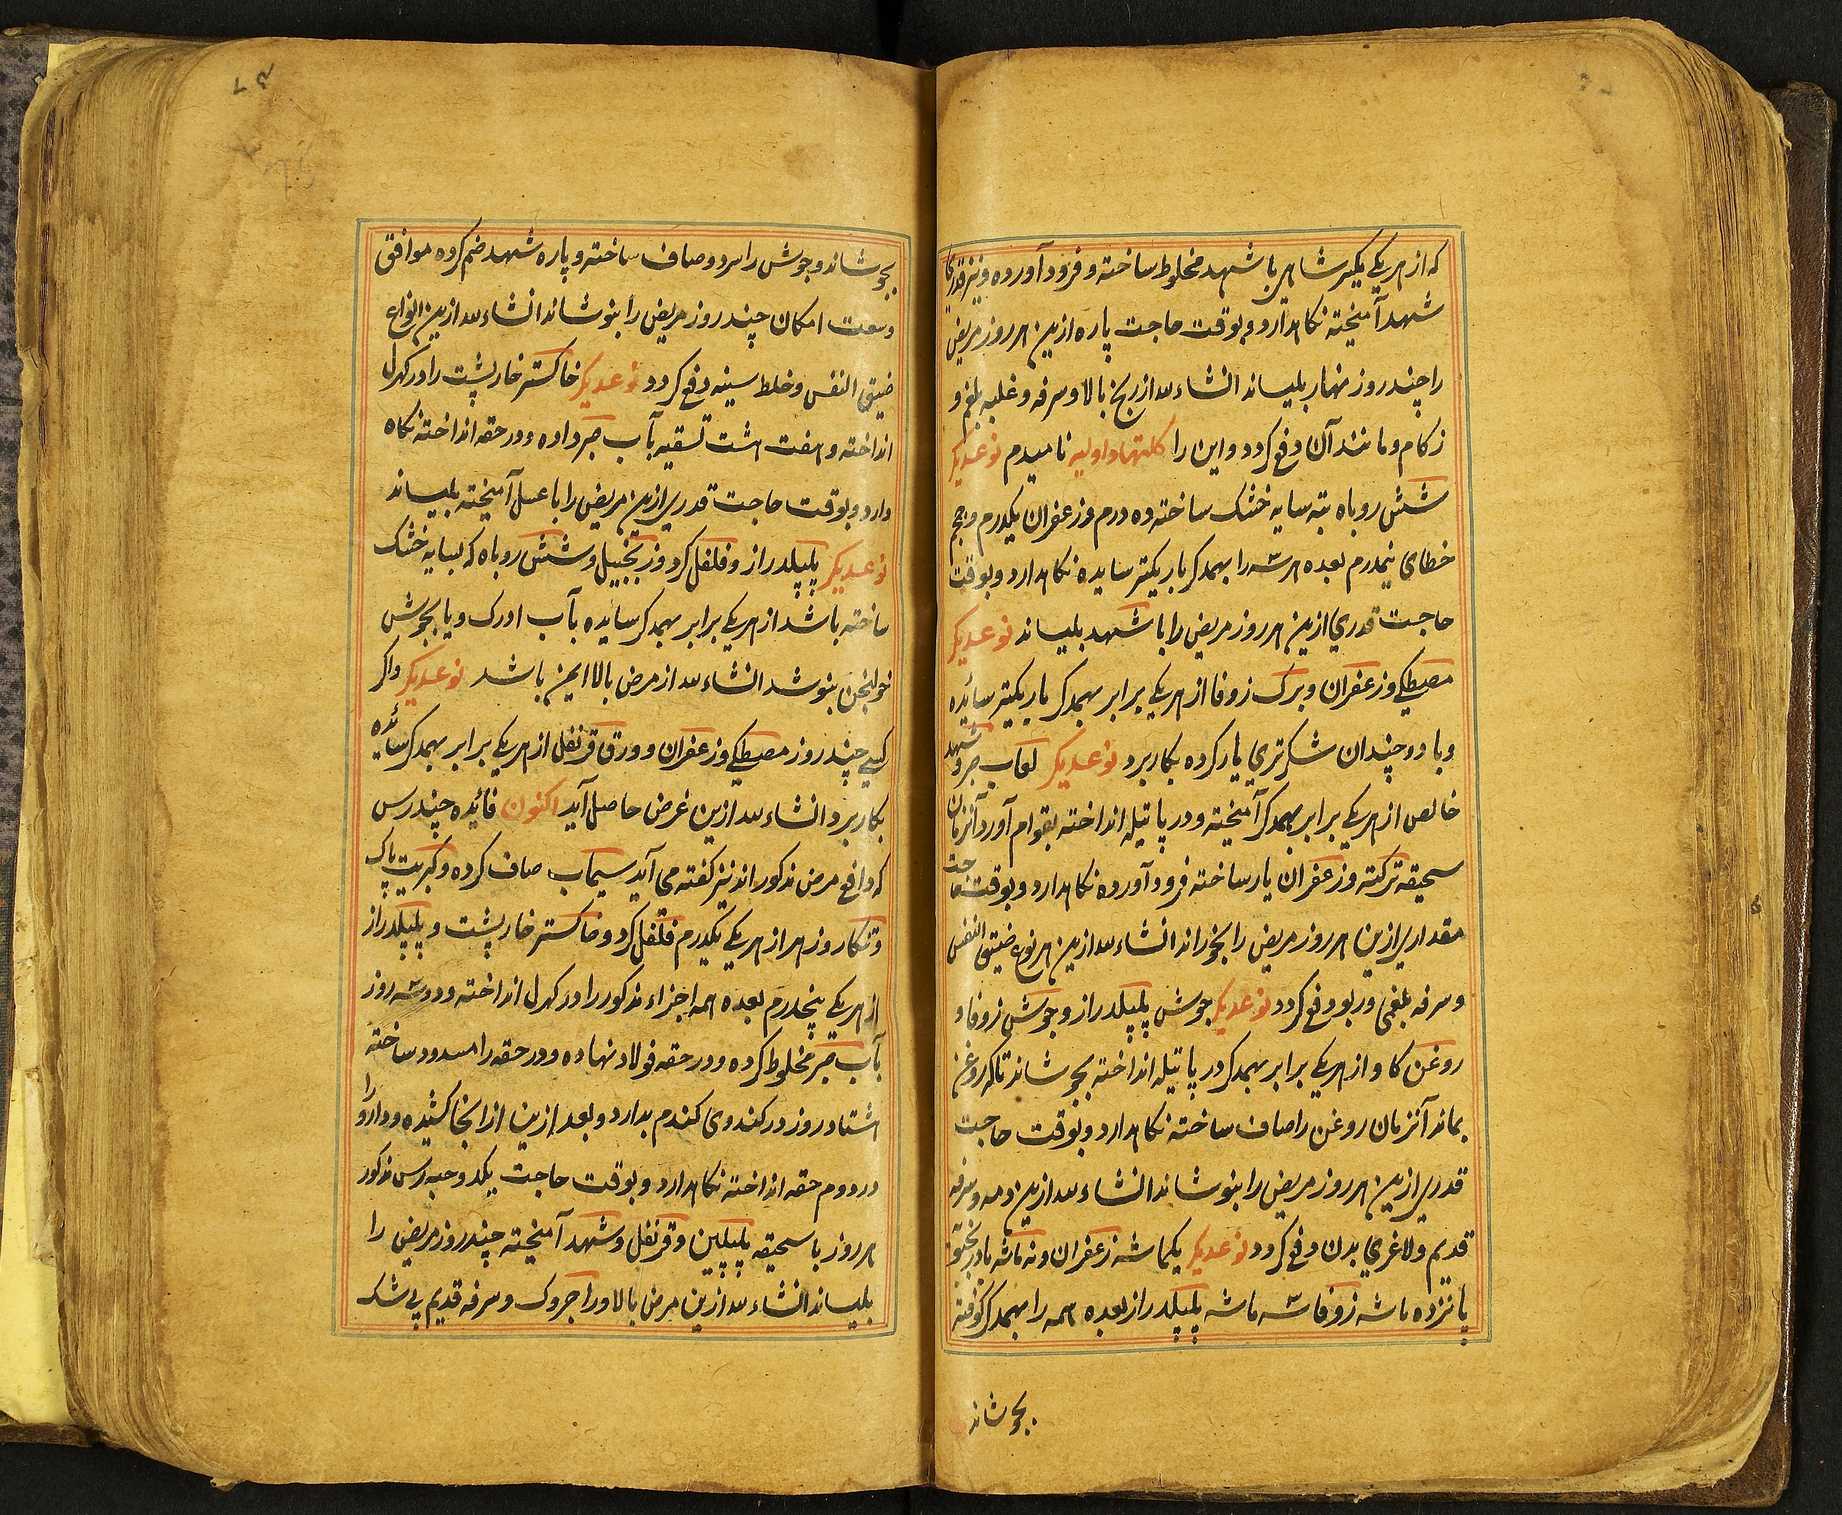 که از هر یکے یکسیر شاهی با شهد مخلوط ساخته و فرود آورده و نیز قدری
شهد آمیخته نکاهدارد و بوقت حاجت پاره ازین هر روز مریض
را چند روز نهار بلیساند انشاء الله از رنج بالا و سرفه و غلبه بلغم و
زکام و مانند آن دفع کردد و این را نامیدم نوعدیکر
شش روباه بته سایه خشک ساخته ده درم و زعفران یکدرم و
خطای نیمدرم بعده هر سه را بهمدکر باریکتر سایده نکاهدارد و بوقت
حاجت قدری ازین هر روز مریض را با شهد بلیساند نوعدیکر
مصطکے و زعفران و برک زوفا از هر یکے برابر بهمدکر باریکتر سائیده
و با دو چندان شکرتری یار کرده بکار برد نوعدیکر لعاب صبر و شهد
خالص از هر یکے برابر بهمدکر آمیخته و در پاتیله انداخته بقوام آورد آنزمان
سحیقه ترکته و زعفران یار ساخته فرود آورده نکاهدارد و بوقت حاجت
مقداری ازین هر روز مریض را بخوراند انشاء الله ازین هر نوع ضیق النفس
و سرفه بلغمی و ربو دفع کردد نوعدیکر جوش پلپلدراز و جوش زوفا و
روغن کاو از هر یکے برابر بهمدکر در پاتیله انداخته بجوشاند تا که روغن
بماند آنزمان روغن را صاف ساخته نکاهدارد و بوقت حاجت
قدری ازین هر روز مریض را بنوشاند انشاء الله ازین دمه و سرفه
قدیم و لاغری بدن دفع کردد نوعدیکر یکماشه زعفران و نه ماشه بادرنجبویه
پانزده ماشه زوفا سه ماشه پلپلدراز بعده همه را بهمدکر کوفته
بجوشاند
بجوشاند و جوش را سرد و صاف ساخته و پاره شهد ضم کرده موافق
وسعت امکان چند روز مریض را بنوشاند انشاء الله ازین انواع
ضیق النفس و خلط سینه دفع کردد نوعدیکر خاکستر خارپشت را در کهرل
انداخته و هفت هشت تسقیه بآب صبر داده و در حقه انداخته نکاه
دارد و بوقت حاجت قدری ازین مریض را با عسل آمیخته بلیساند
نوعدیکر پلپلدراز و فلفل کرد و زنجبیل و شش روباه که بسایه خشک
ساخته باشد از هر یکے برابر بهمدکر سائیده بآب ادرک و یا بجوش
خولنجن بنوشد انشاء الله از مرض بالا ایمن باشد نوعدیکر و اکر
کسے چند روز مصطکے و زعفران و ورق قرنفل از هر یکے برابر بهمدکر سائیده
بکار برد انشاء الله ازین غرض حاصل آید اکنون فائده چند رس
که دافع مرض مذکور اند نیز کفته می آید سیماب صاف کرده و کبریت پاک
و تنکار و زهر از هر یکے یکدرم فلفل کرد و خاکستر خارپشت و پلپلدراز
از هر یکے پنجدرم بعده همه اجزاء مذکور را در کهرل انداخته و دو سه روز
بآب صبر مخلوط کرده و در حقه فولاد نهاده و در حقه را مسدود ساخته
هشتاد روز در کندوی کندم بدارد و بعد ازین از انجا کشیده و دارو را
در دوم حقه انداخته نکاهدارد و بوقت حاجت یکدو حبه رس مذکور
هر روز با سحیقه پلپلین و قرنفل و شهد آمیخته چند روز مریض را
بلیساند انشاء الله ازین مرض بالا و راجروک و سرفه قدیم بی شک